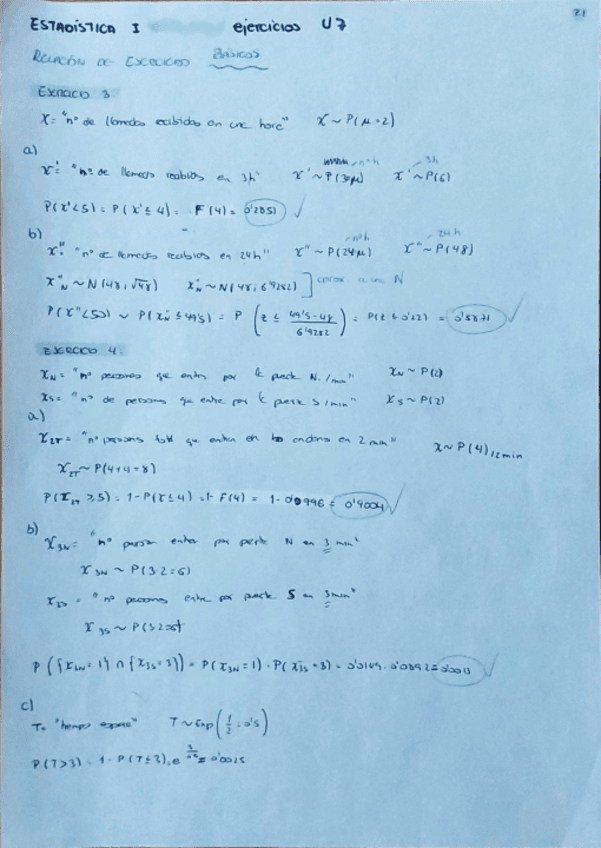 21
ESTADÍSTICA I ejercicios U7
RELACIÓN DE EJERCICIOS BÁSICOS
EJERCICIO 3
X= "nº de llamadas recibidas en una hora" X ~ P(μ=2)
a)
X'= "nº de llamadas recibidas en 3h" X' ~ P(3·μ) X' ~ P(6)
P(X'<5) = P(X' ≤ 4) = F(4) = 0'2851
b)
X''= "nº de llamadas recibidas en 24h" X'' ~ P(24μ) X'' ~ P(48)
24h
X''N ~ N(48, √48) X''N ~ N(48; 6'9282) aprox a una N
P(X''<50) ~ P(XN ≤ 49'5) = P(Z ≤ 49'5-48 / 6'9282) = P(Z ≤ 0'22) = 0'5871
EJERCICIO 4.
XN = "nº personas que entran por la puerta N./min" XN ~ P(2)
XS = "nº de persona que entre por la puerta S/min" XS ~ P(2)
a)
X2T = "nº persons total que entran en 2 min" X ~ P(4) 12min
X2T ~ P(4+4=8)
P(X2T ≥ 5) = 1-P(X≤4) = 1-F(4) = 1-0'0996 = 0'9004
b)
X3N = "nº entren por puerta N en 3 min"
X3N ~ P(3·2=6)
X3S = "nº personas entre por puerta S en 3min"
X3S ~ P(3·2=6)
P({X3N=1} ∩ {X3S=3}) = P(X3N=1) · P(X3S=3) = 0'0149 · 0'0892 = 0'0013
c)
T= "tiempo espera" T ~ Exp(1/2 = 0'5)
P(T>3) = 1 - P(T≤3) = e